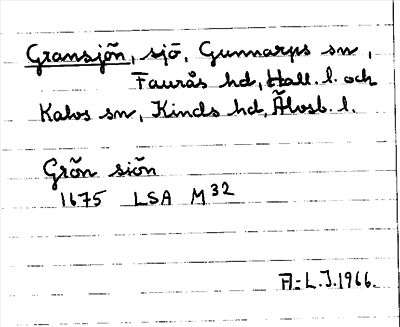 Gransjön, sjö, Gunnarps sn,
Faurås hd, Hall. l. och
Kalvs sn, Kinds hd, Älvsb. l.
Grön siön
1675 LSA M32
A:L.I.1966.